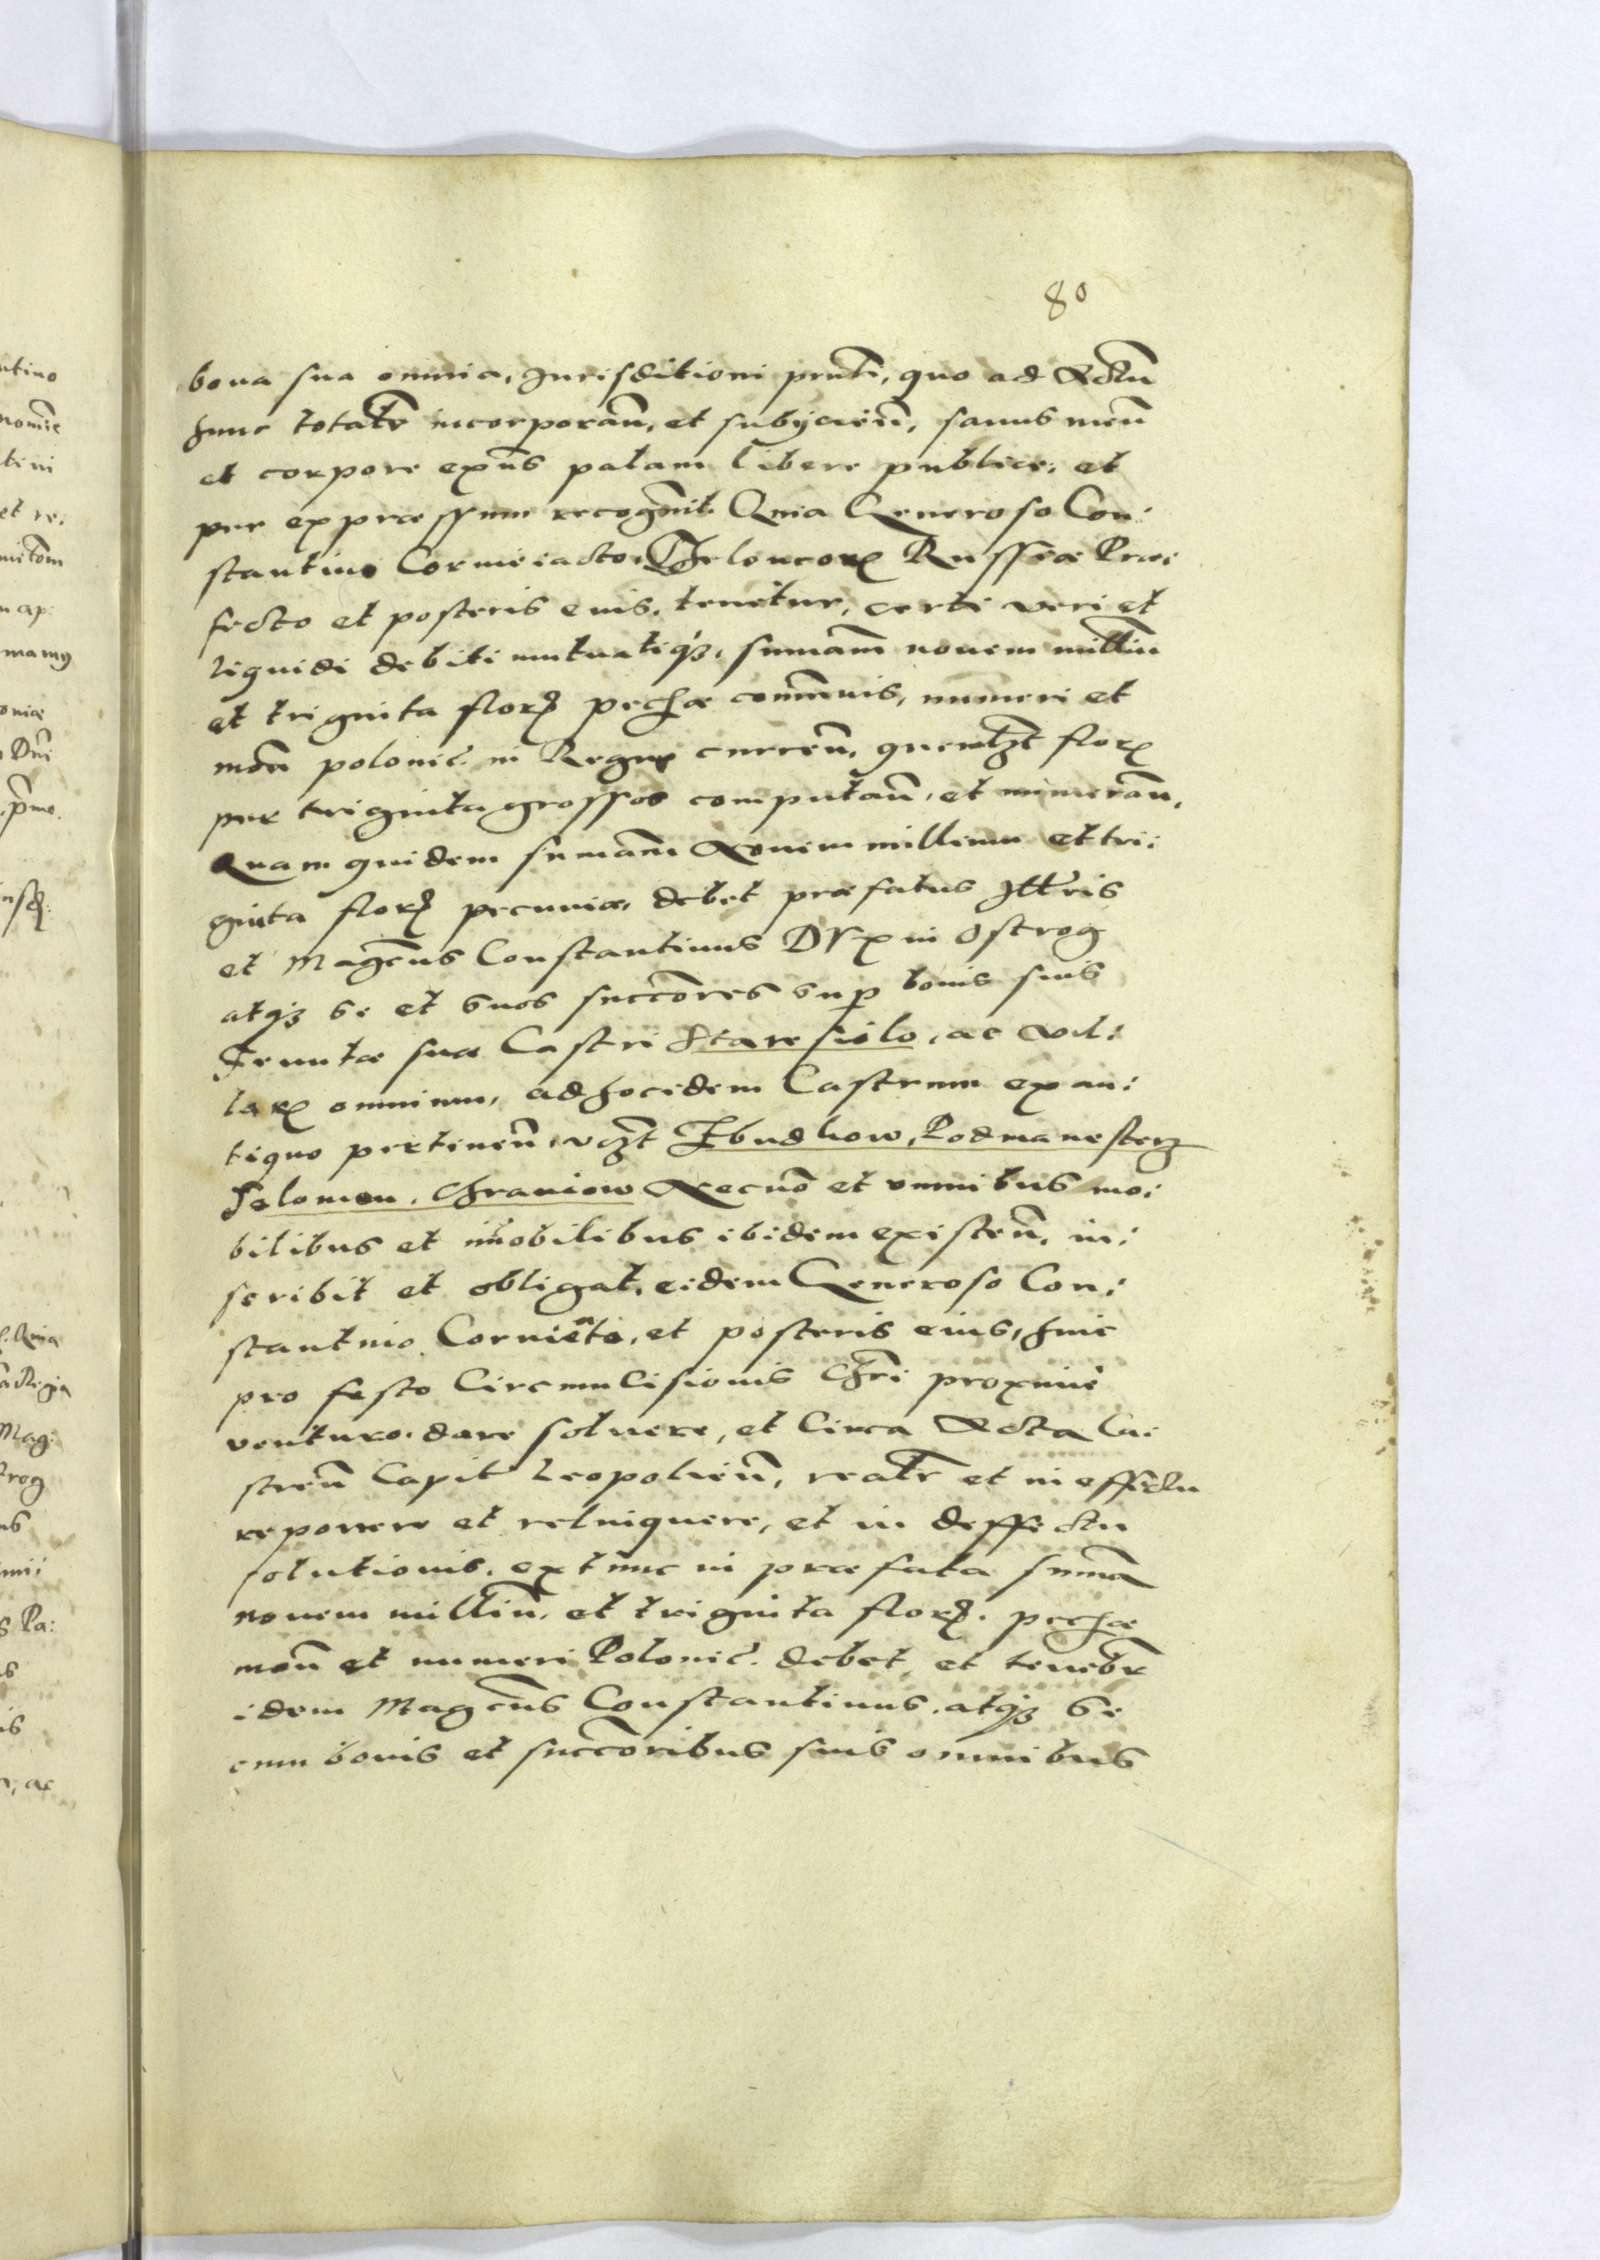 80
bona sua omnia, Jurisditioni prnti, quo ad Actum
hunc totalr incorporan, et subijcien, sanus men
et corpore exns palam libere publice, et
per expraessum recognit. Quia Generoso Con:
stantino Corniacto, Theloneorum Russiae Prae:
fecto et posteris eius, tenetur, certi veri et
liquidi debiti mutuatiq3, summam novem millium
et triginta flor pechae communis, numeri et
mon polonic. in Regno curren, quemlzt flor
per triginta grossos computan, et numeran,
Quam quidem summam Novem millium et tri:
ginta flor pecuniae, debet praefatus Illtris
et Magcus Constantinus Dux in Ostrog
atq3 se et suos succores sup bonis suis
Tenutae suae Castri Staresiolo, ac vil:
larum omnium, ad hocidem Castrum ex an:
tiquo pertinen, vczt Budkow, Podmanesterz
Solomon, Chraniow Necno et omnibus mo:
bilibus et imobilibus ibidem existen, in:
scribit et obligat, eidem Generoso Con:
stantino Corniato, et posteris eius, hinc
pro festo Circumcisionis Chri proxime
venturo, dare solvere, et Circa Acta Ca:
stren Capit Leopolien, realr et in effectu
reponere et relinquere, et in deffectu
solutionis, extunc in praefata summa
novem millium, et triginta flor. pechae
mon et numeri Polonic. debet, et tenebr
idem Magcus Constantinus, atq3 se
cum bonis et succoribus suis omnibus